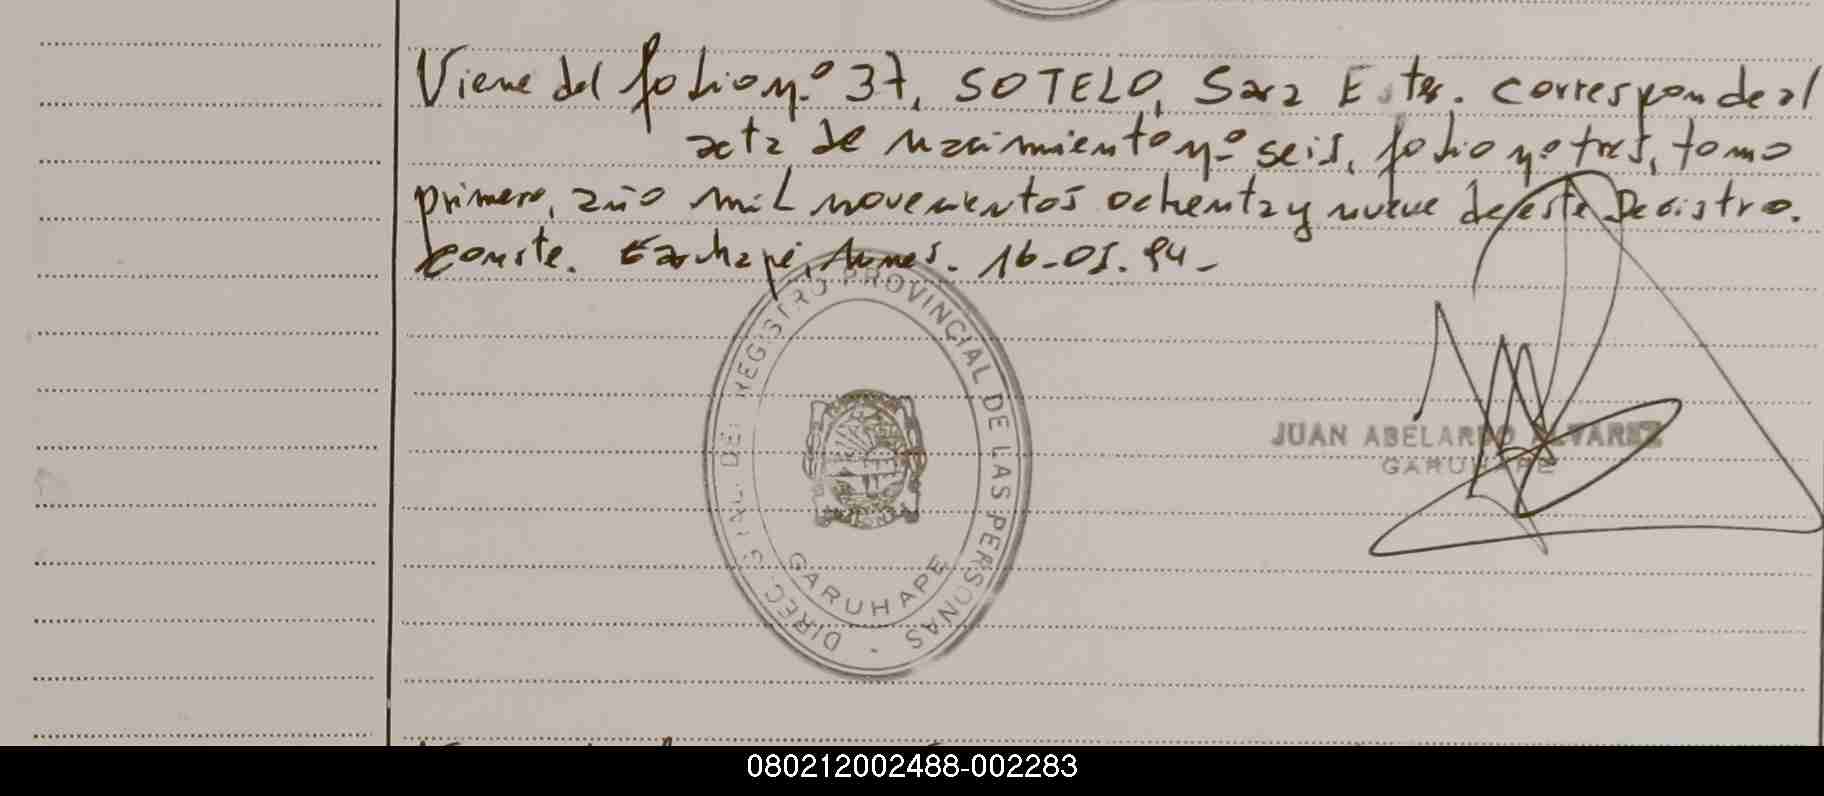 Viene del folio n.º 37, SOTELO, Sara Ester. corresponde al
acta de nacimiento n.º seis, folio n.º tres, tomo
primero, año mil novecientos ochenta y nueve de este Registro.
conste. Garuhapé, Mnes. 16-05-94.-
DIREC GRAL. DEL REGISTRO PROVINCIAL DE LAS PERSONAS -
GARUHAPE
JUAN ABELARDO ALVAREZ
GARUHAPE
080212002488-002283